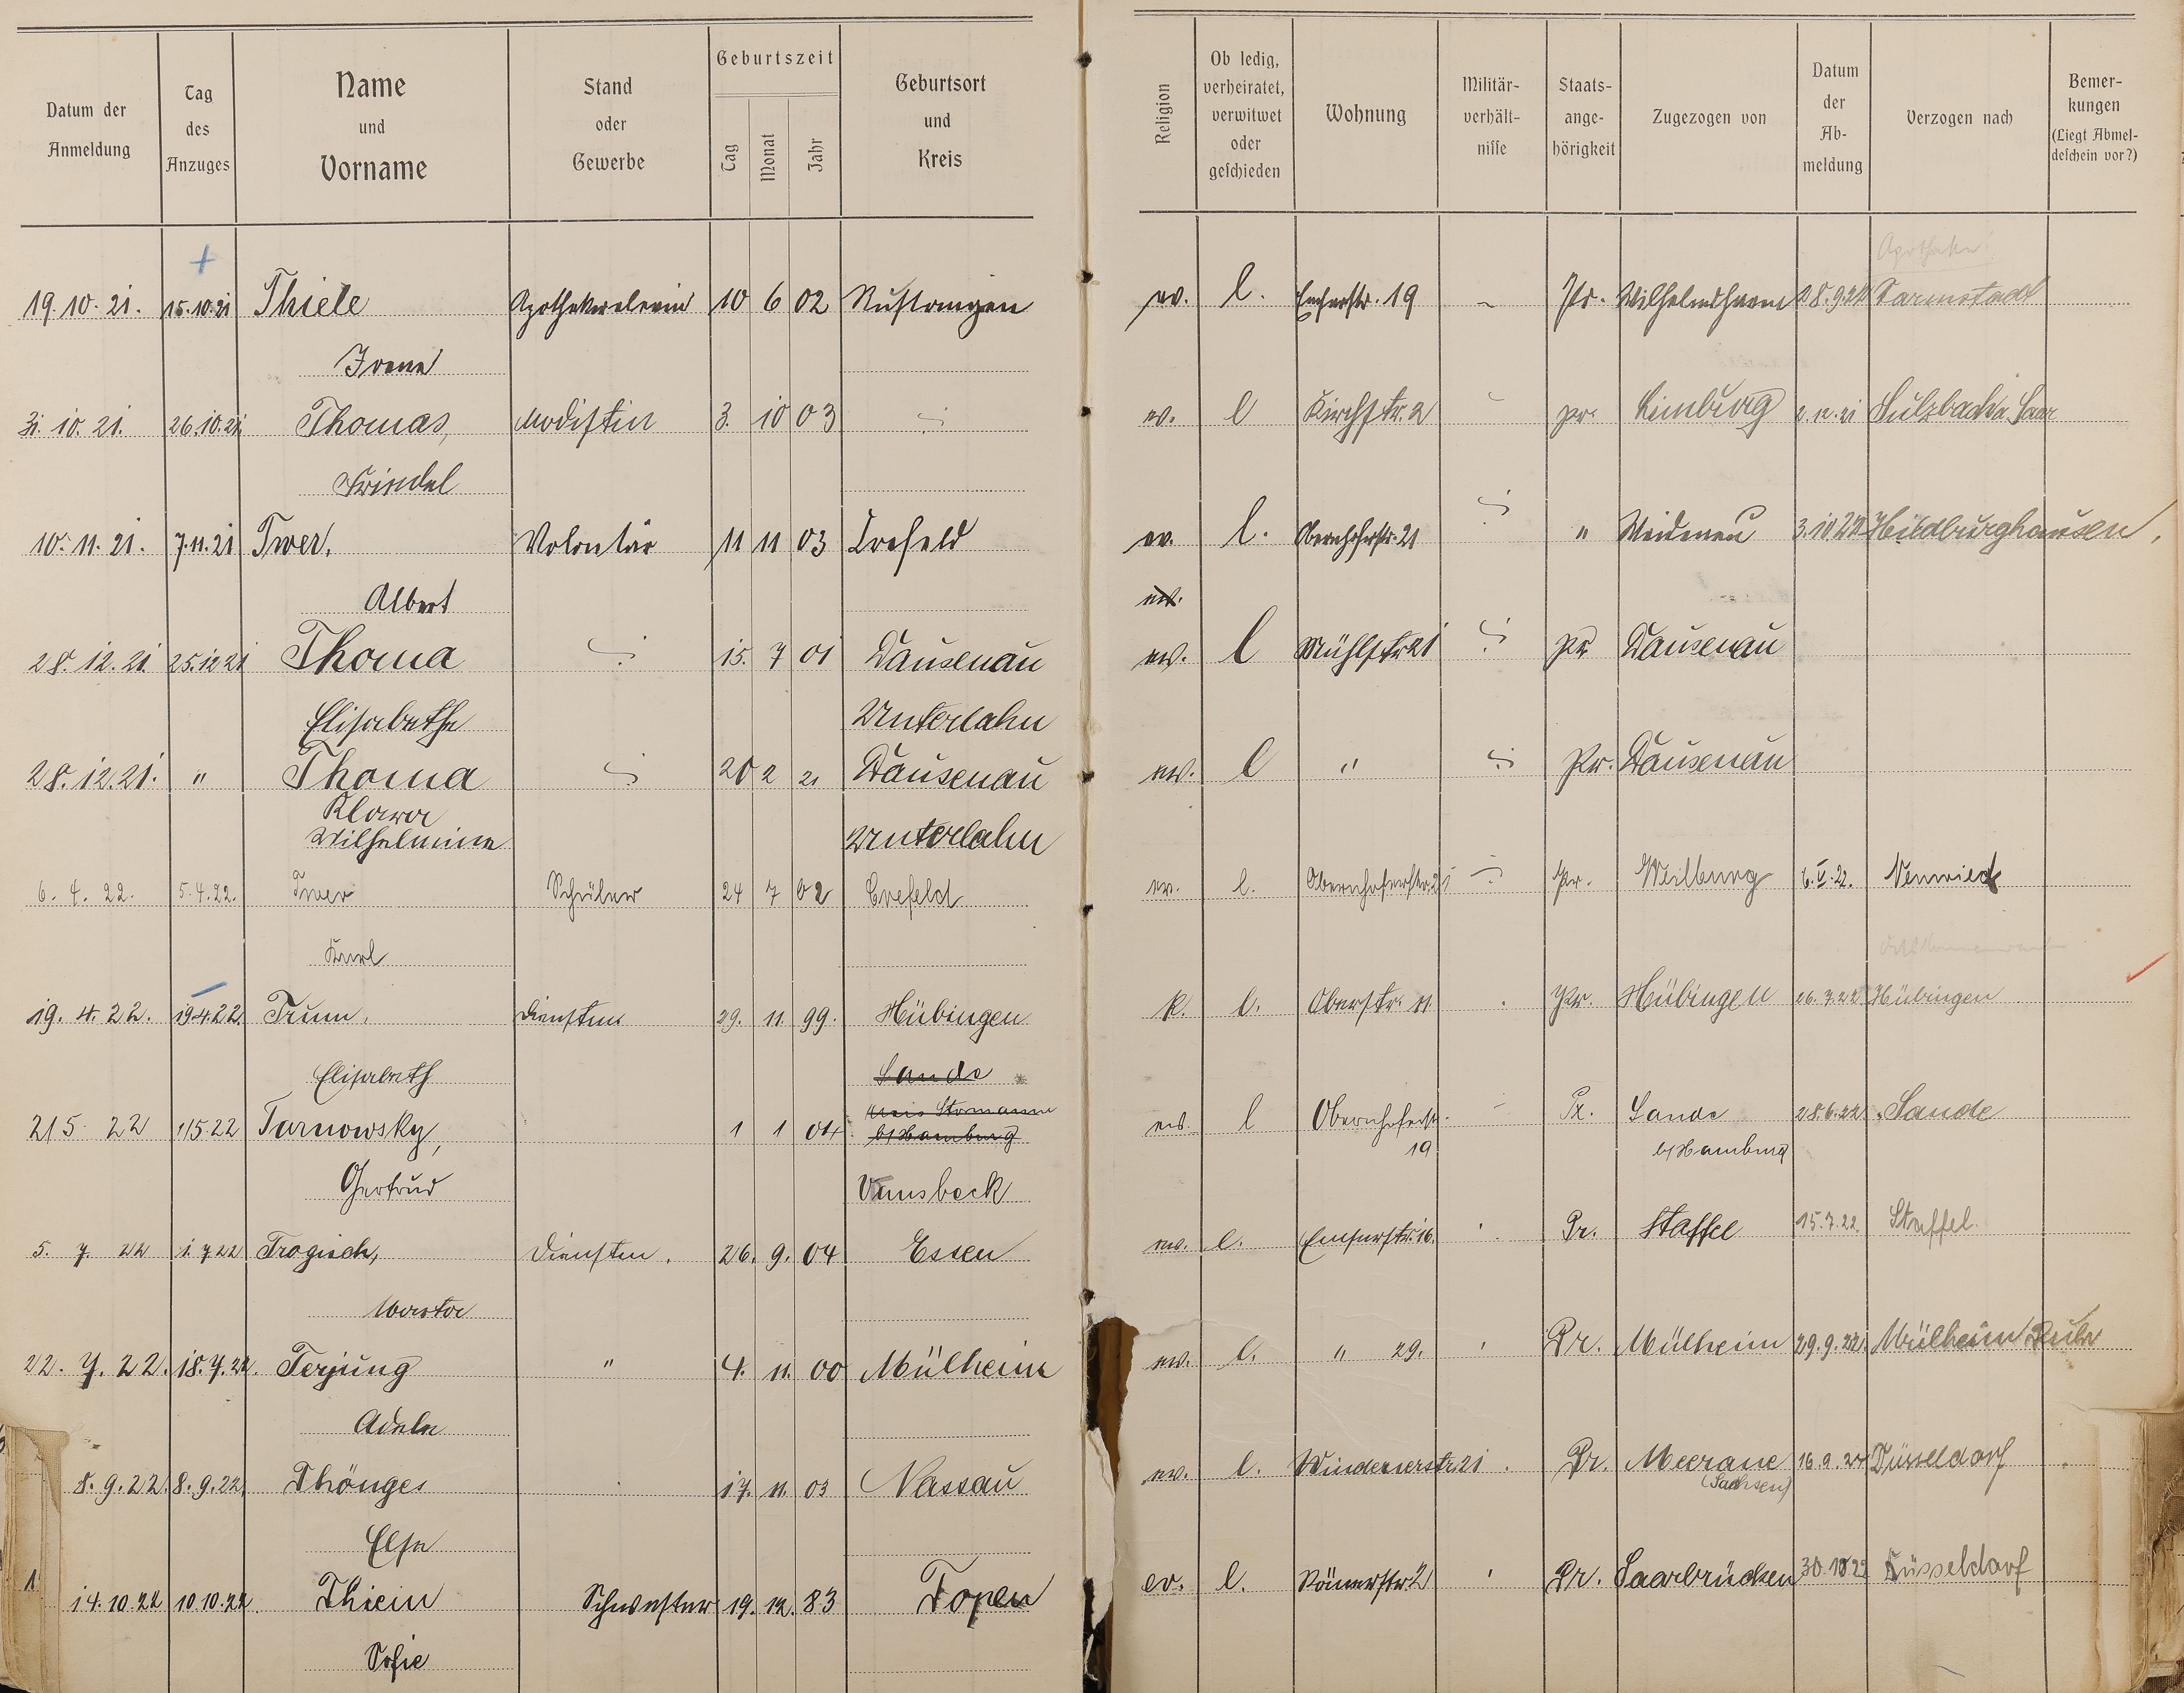 Datum der Anmeldung
Tag des Anzuges
Name und Vorname
Stand oder Gewerbe
Geburtszeit
Tag Monat Jahr
Geburtsort und Kreis
Religion
Ob ledig, verheiratet, verwitwet oder geschieden
Wohnung
Militär-verhält-nisse
Staats-ange-hörigkeit
Zugezogen von
Datum der Ab-meldung
Verzogen nach
Bemer-kungen (Liegt Abmel-deschein vor?)
19.10.21. 15.10.21 Thiele 10 6 02 ev. l. Emserstr. 19 Pr. Wilhelmshaven Darmstadt
Irene
31.10.21. 26.10.21 Thomas, Modistin 3. 10 03 ev. l Kirchstr. 2 pr. Limburg 2.12.21 Sulzbach a. Saar
Friedel
10.11.21. 7.11.21 Twer, Volontär 11 11 03 Crefeld ev. l. Obernhoferstr. 21 " Weidenau 3.10.22 Hildburghausen
Albert
28.12.21. 25.12.21 Thoma 15. 7 01 Dausenau ev. l Mühlstr 21 pr Dausenau
Elisabethe Unterlahn
28.12.21. " Thoma 20 2 21 Dausenau ev. l " Pr. Dausenau
Klara
Wilhelmine Unterlahn
6.4.22. 5.4.22. Twer Schüler 24 7 02 Crefeld ev. l. Obernhoferstr. 21 Pr. Weilburg 6.V.22. Neuwied
Karl
19.4.22. 19.4.22. Trum, Dienstm. 29. 11. 99. Hübingen k. l. Oberstr. 11. Pr. Hübingen 26.7.22 Hübingen
Elisabeth Sande
Kreis Stormarn
2/5 22 1/5 22 Tarnowsky, 1 1 04 b/Hamburg ev. l Obernhoferstr. 19 Pr. Sande b/Hamburg 28.6.22 Sande
Gertrud Wansbeck
5. 7. 22 1.7.22 Trogisch, Dienstm. 26. 9. 04 Essen ev. l. Emserstr. 16. Pr. Staffel 15.7.22. Staffel.
22.7.22. 18.7.22. Terjung " 4. 11. 00 Mülheim ev. l. " 29. Pr. Mülheim 29.9.22. Mülheim Ruhr
Adele
8.9.22. 8.9.22. Thönges 17. 11. 03 Nassau ev. l. Windenerstr. 21 Pr. Meerane (Sachsen) Düsseldorf
Else
1
14.10.22 10.10.22. Thiein Schwester 19. 12. 83 Topen ev. l. Römerstr 2 Pr. Saarbrücken 30.10.22 Düsseldorf
Sofie